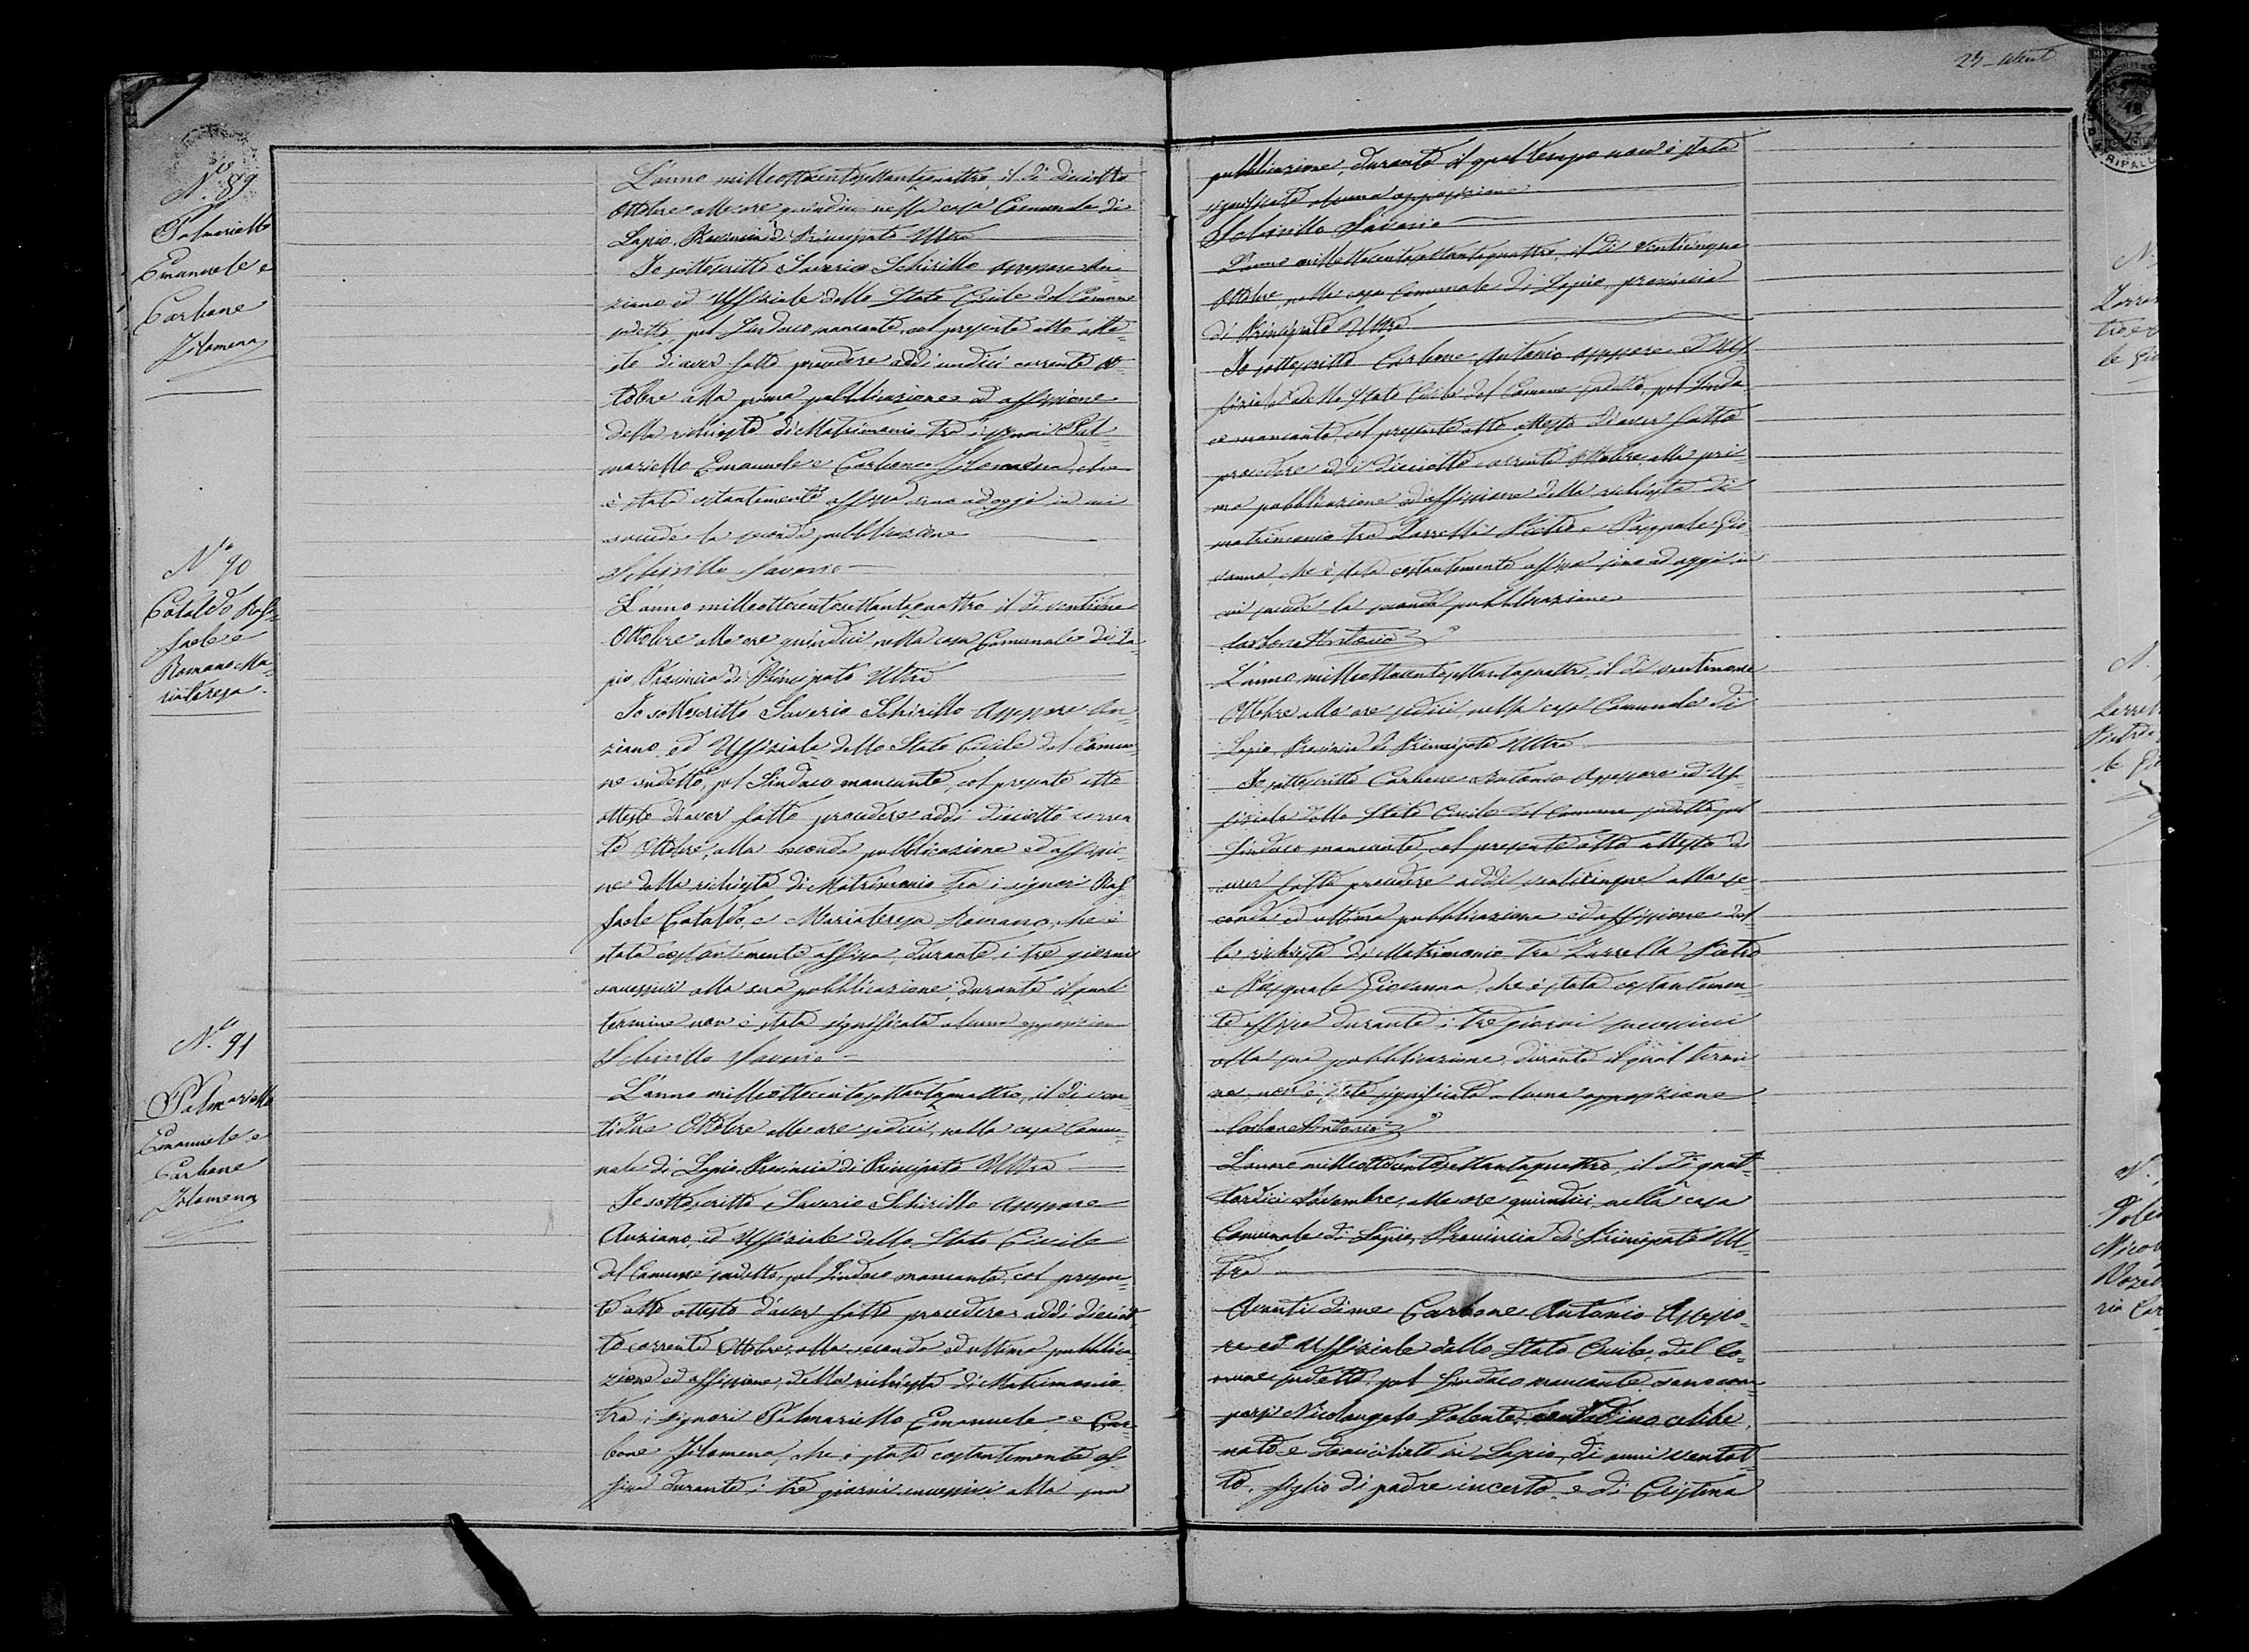 N.º 89
Palmariello
Emanuele e
Carbone
Filomena
L'anno milleottocentosettantaquattro, il dì diciotto
Ottobre alle ore quindici nella casa Comunale di
Lapio, Provincia di Principato Ultra
Io sottoscritto Saverio Schirillo Assessore An=
ziano ed Uffiziale dello Stato Civile del Comune
sudetto, pel Sindaco mancante, col presente atto atte=
sto di aver fatto procedere addì undici corrente Ot=
tobre alla prima pubblicazione ed affissione
della richiesta di Matrimonio tra i signori Pal=
mariello Emanuele e Carbone Filomena, che
è stata costantemente affissa sino ad oggi in cui
succede la seconda pubblicazione
Schirillo Saverio
N.º 90
Cataldo Raf=
faele e
Romano Ma=
riateresa
L'anno milleottocentosettantaquattro il dì ventidue
Ottobre alle ore quindici, nella casa Comunale di La=
pio Provincia di Principato Ultra
Io sottoscritto Saverio Schirillo Assessore An=
ziano, ed Uffiziale dello Stato Civile del Comu=
ne sudetto, pel Sindaco mancante, col presente atto
attesto di aver fatto procedere addì diciotto corren
te Ottobre, alla seconda pubblicazione ed affissio=
ne della richiesta di Matrimonio tra i signori Raf=
faele Cataldo, e Mariateresa Romano, che è
stata costantemente affissa, durante i tre giorni
successivi alla sua pubblicazione, durante il qual
termine non è stata significata alcuna opposizione
Schirillo Saverio
N.º 91
Palmariello
Emanuele e
Carbone
Filomena
L'anno milleottocentosettantaquattro, il dì ven=
tidue Ottobre alle ore sedici, nella casa Comu=
nale di Lapio, Provincia di Principato Ultra
Io sottoscritto Saverio Schirillo Assessore
Anziano, ed Uffiziale dello Stato Civile
del Comune sudetto, pel Sindaco mancante, col presen=
te atto attesto d'aver fatto procedere addì diciot=
to corrente Ottobre, alla seconda ed ultima pubblica=
zione ed affissione, della richiesta di Matrimonio
tra i signori Palmariello Emanuele, e Car=
bone Filomena, che è stata costantemente af=
fissa durante i tre giorni successivi alla sua
pubblicazione, durante il qual tempo non è stata
significata alcuna opposizione
Schirillo Saverio
L'anno milleottocentosettantaquattro, il dì venticinque
Ottobre, nella casa Comunale di Lapio, provincia
di Principato Ultra
Io sottoscritto Carbone Antonio Assessore ed Uf=
fiziale dello Stato Civile del Comune sudetto, pel Sinda=
co mancante, col presente atto attesto di aver fatto
procedere addì diciotto corrente Ottobre, alla pri=
ma pubblicazione ed affissione della richiesta di
matrimonio tra Zarrella Pietro e Pasquale Gio=
vanna, che è stata costantemente affissa sino ad oggi in
cui succede la seconda pubblicazione
Carbone Antonio
L'anno milleottocentosettantaquattro, il dì ventinove
Ottobre alle ore sedici, nella casa Comunale di
Lapio, Provincia di Principato Ultra
Io sottoscritto Carbone Antonio Assessore ed Uf=
fiziale dello Stato Civile del Comune sudetto, pel
Sindaco mancante, col presente atto attesto di
aver fatto procedere addì venticinque alla se=
conda ed ultima pubblicazione ed affissione del=
la richiesta di Matrimonio tra Zarrella Pietro
e Pasquale Giovanna, che è stata costantemen=
te affissa durante i tre giorni successivi
alla sua pubblicazione, durante il qual termi=
ne non è stata significata alcuna opposizione
Carbone Antonio
L'anno milleottocentosettantaquattro, il dì quat=
tordici Novembre, alle ore quindici, nella casa
Comunale di Lapio, Provincia di Principato Ul=
tra
Avanti di me Carbone Antonio Assesso=
re ed Uffiziale dello Stato Civile, del Co=
mune sudetto, pel Sindaco mancante sono com=
parsi Nicolangelo Polente, contadino celibe,
nato e domiciliato in Lapio, di anni ventot=
to, figlio di padre incerto, e di Cristina